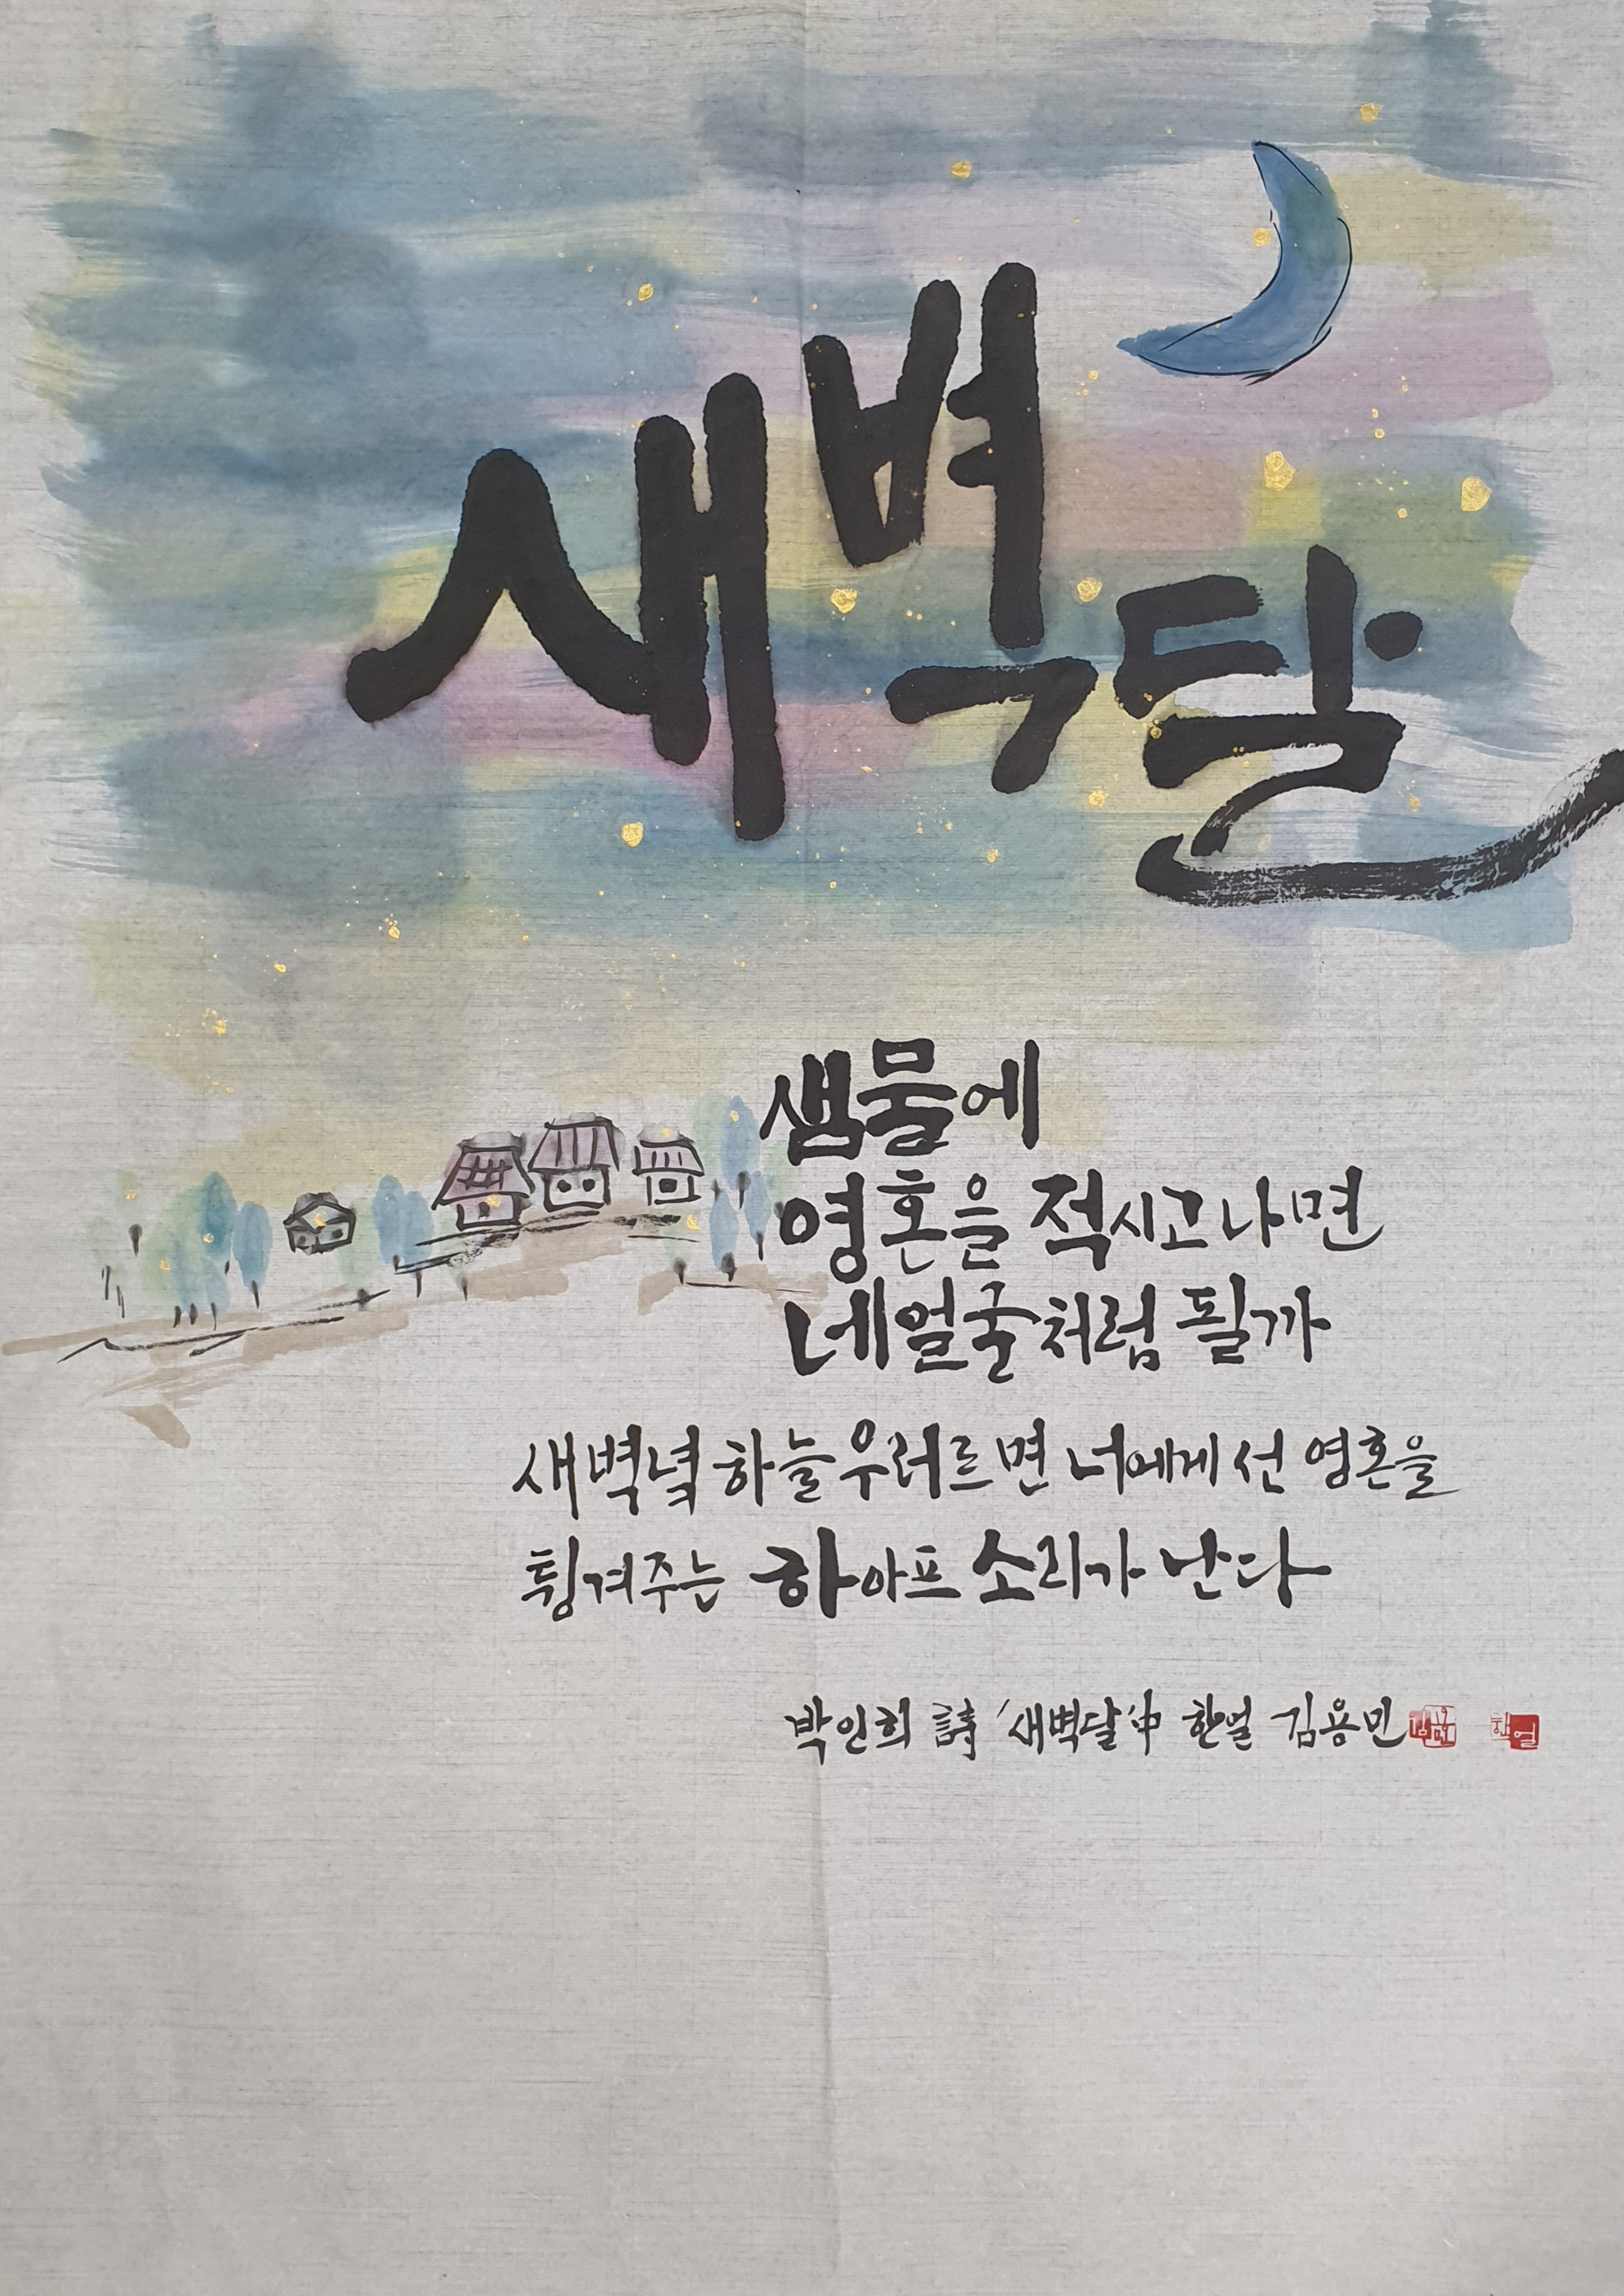 새벽달
샘물에
영혼을 적시고 나면
네 얼굴처럼 필까
새벽녘 하늘 우러르면 너에게선 영혼을
튕겨주는 하아프 소리가 난다
박인희 詩 '새벽달' 中 한얼 김용민
한얼